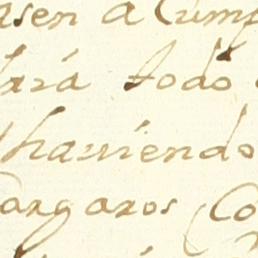 asen a Cump
hará todo
haviendo
Cargaros (Co